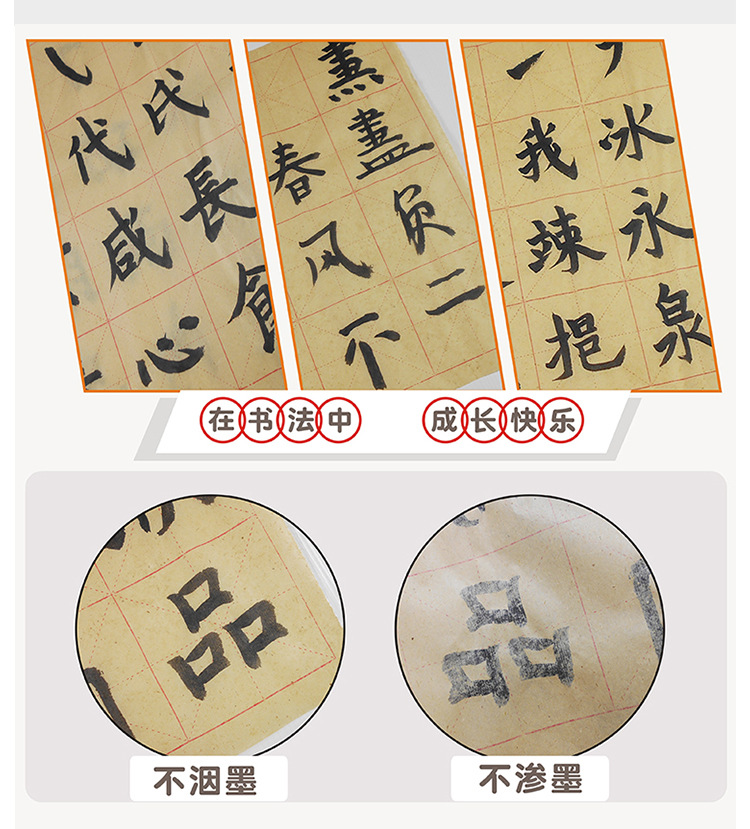 代 氏
咸 長
心
春 盡
风 负
不 二
一
我 冰
竦 永
挹 泉
在书法中 成长快乐
品 品
不洇墨 不渗墨